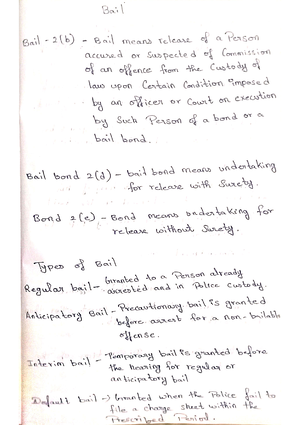 Bail
Bail - 2(b) - Bail means release of a Person
accured or Suspected of Commission
of an offence from the Custody of
law upon Certain Condition imposed
by an officer or Court on execution
by Such Person of a bond or a
bail bond.
Bail bond 2(d) - bail bond means undertaking
for release with Surety.
Bond 2(e) - Bond means undertaking for
release without Surety.
Types of Bail
Regular bail - Granted to a Person already
arrested and in Police Custody.
Anticipatory Bail - Precautionary bail is granted
before arrest for a non-bailable
offense.
Interim bail - Temporary bail is granted before
the hearing for regular or
anticipatory bail
Default bail -> Granted when the Police fail to
file a charge sheet within the
Prescribed Period.